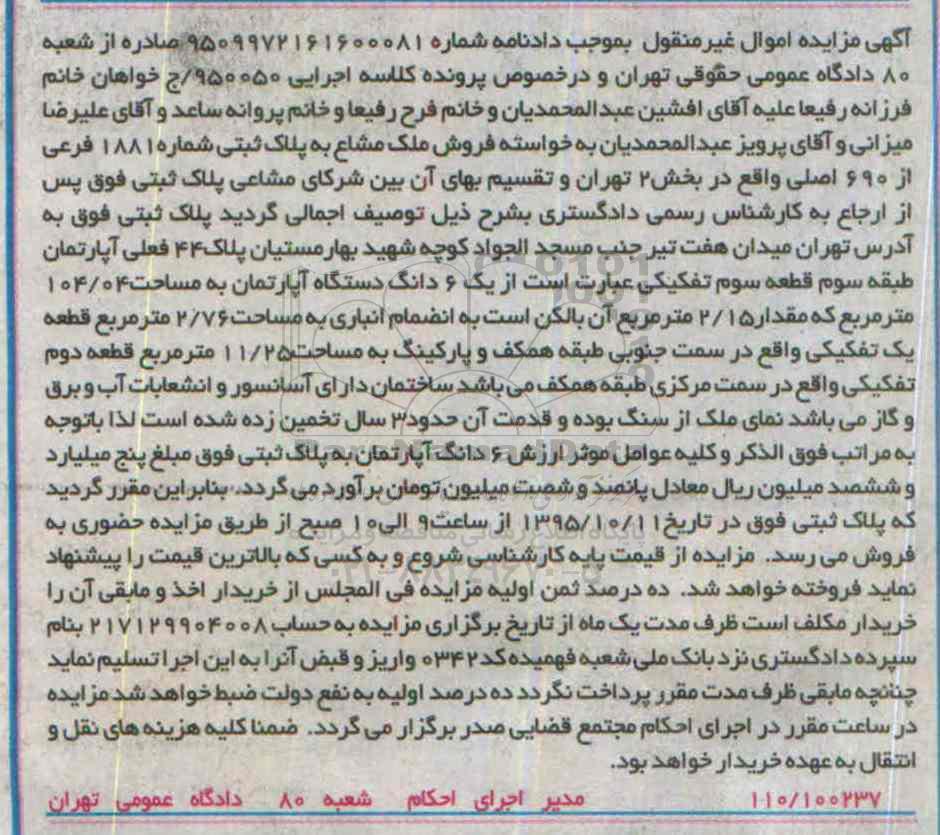 آگهی مزایده اموال غیرمنقول بموجب دادنامه شماره ۹۵۰۹۹۷۲۱۶۱۶۰۰۰۸۱ صادره از شعبه
۸۰ دادگاه عمومی حقوقی تهران و درخصوص پرونده کلاسه اجرایی ۹۵۰۰۵۰/ج خواهان خانم
فرزانه رفیعا علیه آقای افشین عبدالمحمدیان و خانم فرح رفیعا و خانم پروانه ساعد و آقای علیرضا
میزانی و آقای پرویز عبدالمحمدیان به خواسته فروش ملک مشاع به پلاک ثبتی شماره ۱۸۸۱ فرعی
از ۶۹۰ اصلی واقع در بخش۲ تهران و تقسیم بهای آن بین شرکای مشاعی پلاک ثبتی فوق پس
از ارجاع به کارشناس رسمی دادگستری بشرح ذیل توصیف اجمالی گردید پلاک ثبتی فوق به
آدرس تهران میدان هفت تیر جنب مسجد الجواد کوچه شهید بهارمستیان پلاک۴۴ فعلی آپارتمان
طبقه سوم قطعه سوم تفکیکی عبارت است از یک ۶ دانگ دستگاه آپارتمان به مساحت۱۰۴/۰۴
مترمربع که مقدار۲/۱۵ مترمربع آن بالکن است به انضمام انباری به مساحت۲/۷۶ مترمربع قطعه
یک تفکیکی واقع در سمت جنوبی طبقه همکف و پارکینگ به مساحت۱۱/۲۵ مترمربع قطعه دوم
تفکیکی واقع در سمت مرکزی طبقه همکف می باشد ساختمان دارای آسانسور و انشعابات آب و برق
و گاز می باشد نمای ملک از سنگ بوده و قدمت آن حدود۳ سال تخمین زده شده است لذا باتوجه
به مراتب فوق الذکر و کلیه عوامل موثر ارزش ۶ دانگ آپارتمان به پلاک ثبتی فوق مبلغ پنج میلیارد
و ششصد میلیون ریال معادل پانصد و شصت میلیون تومان برآورد می گردد. بنابراین مقرر گردید
که پلاک ثبتی فوق در تاریخ۱۳۹۵/۱۰/۱۱ از ساعت۹ الی۱۰ صبح از طریق مزایده حضوری به
فروش می رسد. مزایده از قیمت پایه کارشناسی شروع و به کسی که بالاترین قیمت را پیشنهاد
نماید فروخته خواهد شد. ده درصد ثمن اولیه مزایده فی المجلس از خریدار اخذ و مابقی آن را
خریدار مکلف است ظرف مدت یک ماه از تاریخ برگزاری مزایده به حساب ۲۱۷۱۲۹۹۰۴۰۰۸ بنام
سپرده دادگستری نزد بانک ملی شعبه فهمیده کد۰۳۴۲ واریز و قبض آنرا به این اجرا تسلیم نماید
چنانچه مابقی ظرف مدت مقرر پرداخت نگردد ده درصد اولیه به نفع دولت ضبط خواهد شد مزایده
در ساعت مقرر در اجرای احکام مجتمع قضایی صدر برگزار می گردد. ضمنا کلیه هزینه های نقل و
انتقال به عهده خریدار خواهد بود.
۱۱۰/۱۰۰۲۳۷ مدیر اجرای احکام شعبه ۸۰ دادگاه عمومی تهران